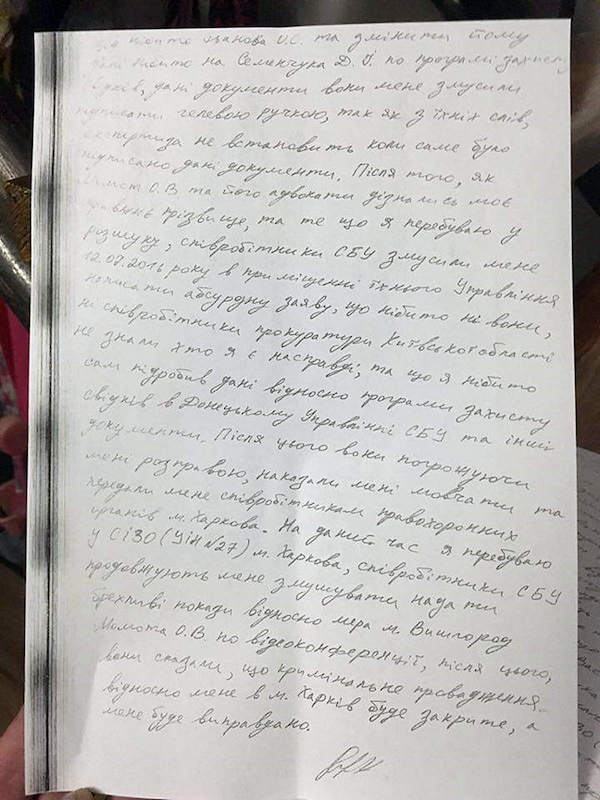 від нібито Іванова О.С. та змінити йому
дані нібито на Семенчука Д.І. по програмі захисту
свідків, дані документи вони мене змусили
підписати гелевою ручкою, так як з їхніх слів,
експертиза не встановить коли саме було
підписано дані документи. Після того, як
Момот О.В та його адвокати дізнались моє
прізвище, та те що я перебуваю у
розшуку, співробітники СБУ змусили мене
12.07.2016 року в приміщенні їхнього Управління
написати абсурдну заяву, що нібито ні вони,
ні співробітники прокуратури Київської області
не знали хто я є насправді, та що я нібито
сам підробив дані відносно програми захисту
свідків в Донецькому Управлінні СБУ та інші
документи. Після цього вони погрожуючи
мені розправою, наказали мені мовчати та
передали мене співробітникам правохоронних
органів м. Харкова. На даний час я перебуваю
у СІЗО (УІН №27) м. Харкова, співробітники СБУ
продовжують мене змушувати надати
брехливі покази відносно мера м. Вишгород
Момота О.В по відеоконференції, після цього,
вони сказали, що кримінальне провадження
відносно мене в м. Харків буде закрите, а
мене буде виправдано.